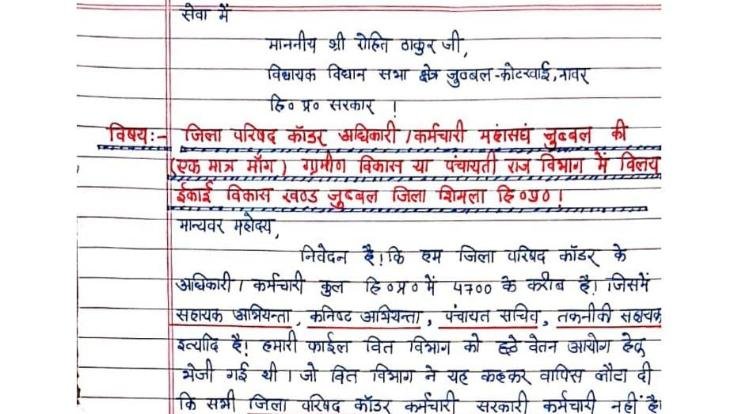 सेवा में
माननीय श्री रोहित ठाकुर जी,
विधायक विधान सभा क्षेत्र जुब्बल-कोटखाई, नावर
हि० प्र० सरकार !
विषय:- जिला परिषद कॉडर अधिकारी / कर्मचारी महासंघ जुब्बल की
(एक मात्र माँग) ग्रामीण विकास या पंचायती राज विभाग में विलय
ईकाई विकास खण्ड जुब्बल जिला शिमला हि०प्र०।
मान्यवर महोदय,
निवेदन है! कि हम जिला परिषद कॉडर के
अधिकारी / कर्मचारी कुल हि०प्र० में 4700 के करीब है! जिसमें
सहायक अभियन्ता, कनिष्ट अभियन्ता, पंचायत सचिव, तकनीकी सहायक
इत्यादि है! हमारी फाईल वित विभाग को छठे वेतन आयोग हेतु
भेजी गई थी। जो वित विभाग ने यह कहकर वापिस लौटा दी
कि सभी जिला परिषद कॉडर कर्मचारी सरकारी कर्मचारी नहीं है!